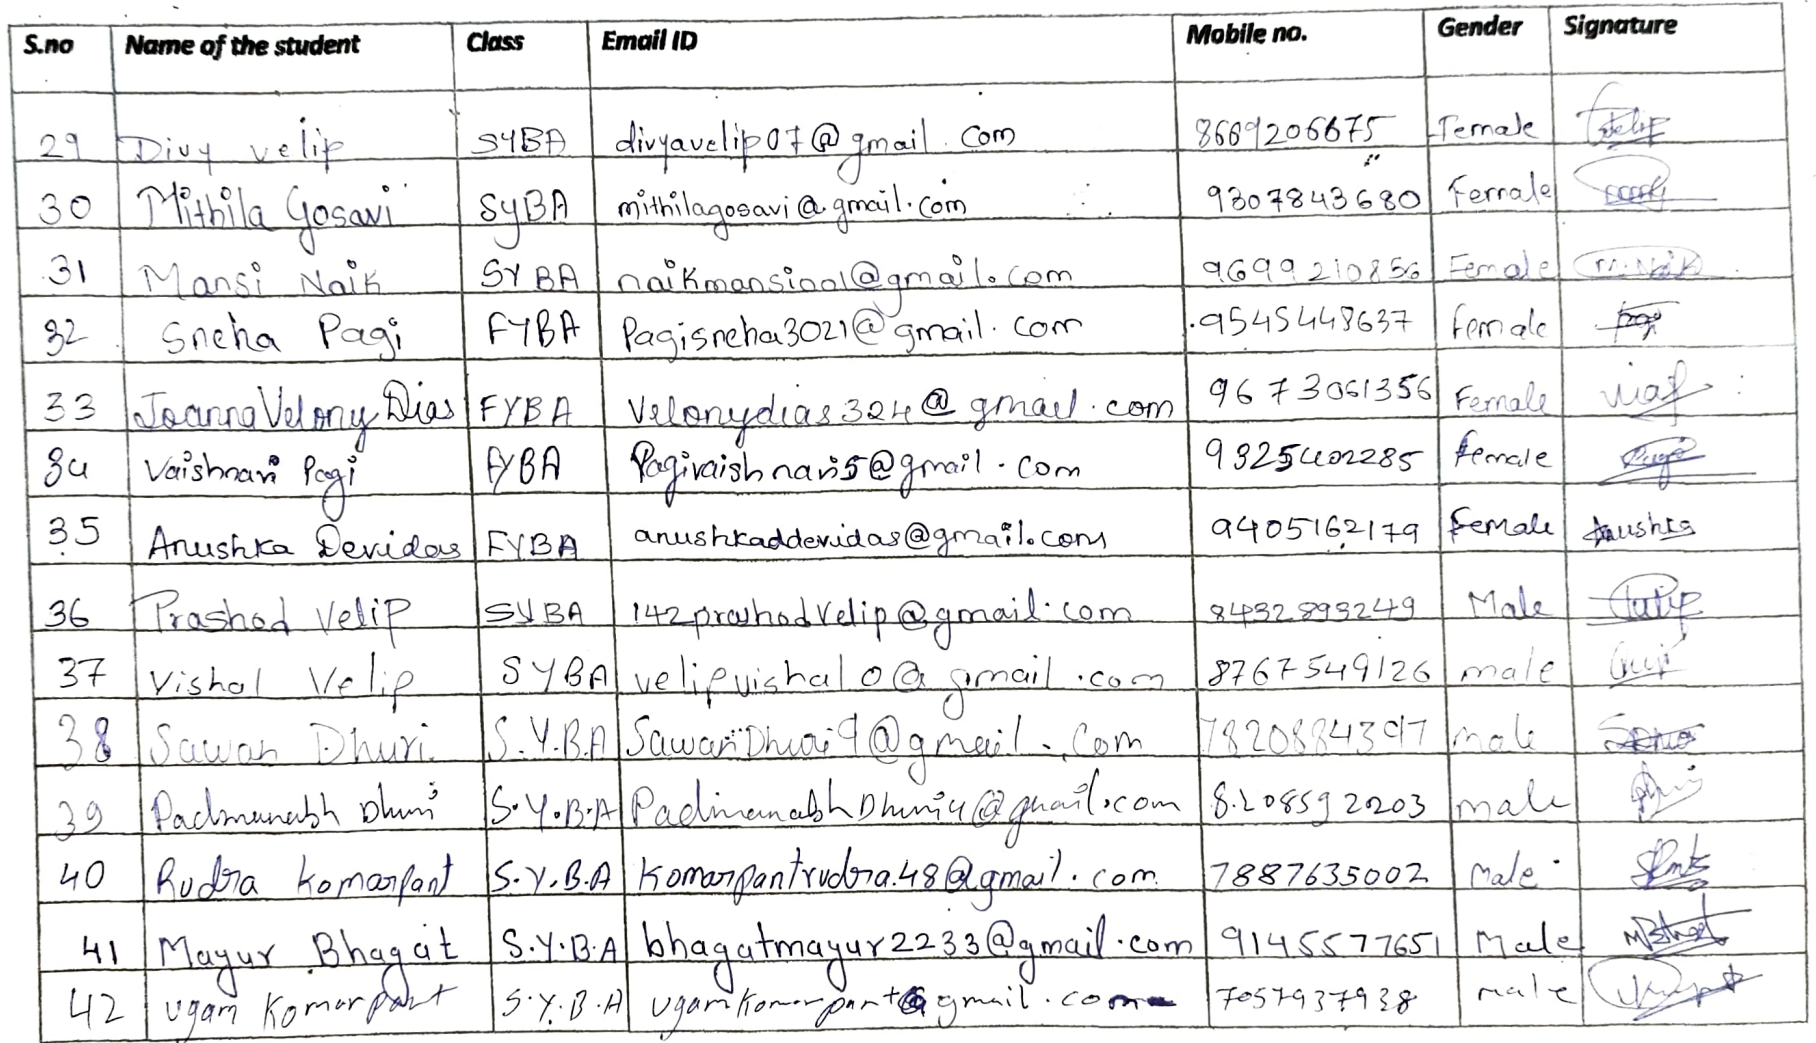 S.no Name of the student Class Email ID Mobile no. Gender Signature
29 Divy velip SYBA divyavelip07@gmail.com 8669206675 Female
30 Mithila Gosavi SyBA mithilagosavi@gmail.com 9307843680 Female
31 Mansi Naik SYBA naikmansiool@gmail.com 9699210856 Female M.Naik
32 Sneha Pagi FYBA Pagisneha3021@gmail.com 9545448637 female
33 Joanna Velony Dias FYBA Velonydias324@gmail.com 9673061356 Female
34 Vaishnavi Pagi FYBA Pagivaishnavi5@gmail.com female
35 Anushka Devidas FYBA anushkaddevidas@gmail.com 9405162179 Female Anushka
36 Prashad Velip SYBA 142prashadvelip@gmail.com 8432893249 Male
37 Vishal Velip SYBA velipvishal0@gmail.com 8767549126 male
38 Sawan Dhuri S.Y.B.A 7820884397 male
39 Padmanabh Dhuri S.Y.B.A 8208592203 male
40 Rudra Komarpant S.Y.B.A Komarpantrudra.48@gmail.com 7887635002 Male
41 Mayur Bhagat S.Y.B.A bhagatmayur2233@gmail.com 9145577651 Male MBhagat
42 Ugam Komarpant S.Y.B.A Ugamkomarpant@gmail.com 7057937938 male